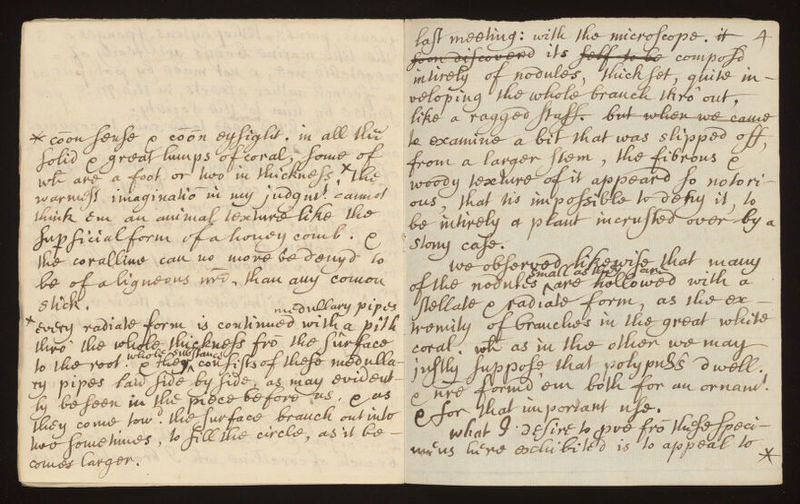 * coōn sense & coōn eysight. in all this
solid & great lumps of coral, some of
wh are a foot or two in thickness, * the
warmest imaginatiō in my judgmt cannot
think em an animal texture like the
supficial form of a honey comb. &
the coralline can no more be denyd to
be of a ligneous nre, than any comon
stick.
medullary pipes
* every radiate form is continued with a pith
thro' the whole thickness frō the surface
whole substance
to the root. & they consists of these medulla-
ry pipes laid side by side, as may evident-
ly be seen in the piece before us. & as
they come towd the surface branch out into
two sometimes, to fill the circle, as it be-
comes larger.
4
last meeting: with the microscope. it
soon discoverd its self to be composd
intirely of nodules, thick set, quite in-
veloping the whole branch thro' out,
like a ragged stuff. but when we came
to examine a bit that was slipped off,
from a larger stem, the fibrous &
woody texture of it appeard so notori-
ous, that tis impossible to deny it, to
be intirely a plant incrusted over by a
stony case.
we observed likewise that many
small as they are
of the nodules are hollowed with a
stellate & radiate form, as the ex-
tremity of branches in the great white
coral. wh as in the other we may
justly suppose that polypuss dwell.
& nre formd em both for an ornamt.
& for that important use.
what I desire to pve frō these speci-
mens here exhibited is to appeal to *